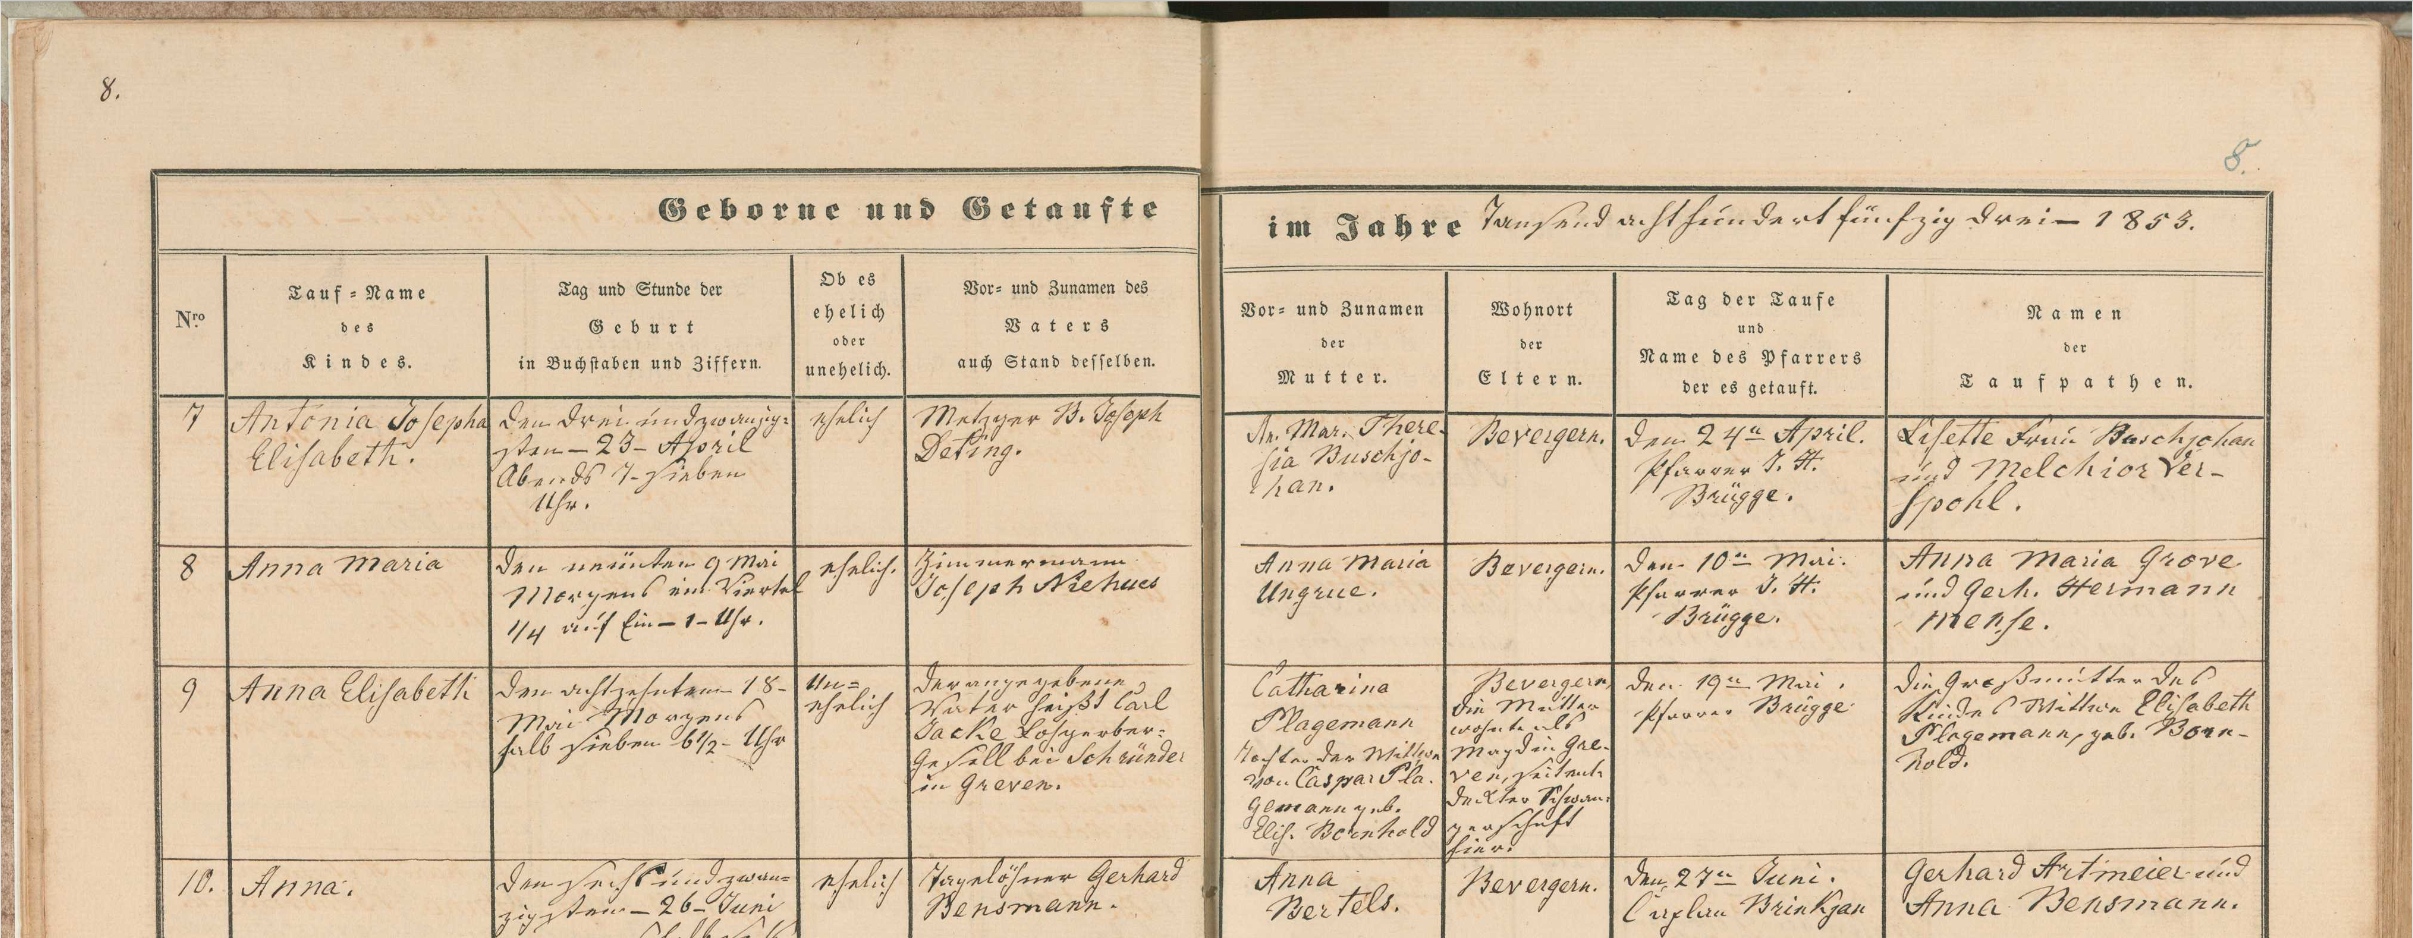 8.
8.
Geborne und Getaufte
im Jahre Tausend achthundert fünfzig drei – 1853.
Nro
Tauf = Name
des
Kindes.
Tag und Stunde der
Geburt
in Buchstaben und Ziffern.
Ob es
ehelich
oder
unehelich.
Vor- und Zunamen des
Vaters
auch Stand desselben.
Vor- und Zunamen
der
Mutter.
Wohnort
der
Eltern.
Tag der Taufe
und
Name des Pfarrers
der es getauft.
Namen
der
Taufpathen.
7
Antonia Josepha
Elisabeth.
den drei und zwanzig=
sten – 23 – April
Abends 7 – sieben
Uhr.
ehelich
Metzger B. Joseph
Deting.
An. Mar. There-
sia Buschjo-
han.
Bevergern.
den 24n April.
Pfarrer J. H.
Brügge.
Lisette Frau Buschjohan
und Melchior Ver-
spohl.
8
Anna Maria
den neunten 9 Mai
Morgens ein Viertel
1/4 auf Ein – 1 – Uhr.
ehelich.
Zimmermann
Joseph Niehues
Anna Maria
Ungrue.
Bevergern.
den 10n Mai.
Pfarrer J. H.
Brügge.
Anna Maria Grove
und Gerh. Hermann
Mense.
9
Anna Elisabeth
den achtzehnten – 18 –
Mai Morgens
halb sieben 6 1/2 – Uhr
Un=
ehelich
der angegebene
Vater heißt Carl
Jacke Lohgerber=
Gesell bei Schründer
in Greven.
Catharina
Plagemann
Tochter der Wittwe
von Caspar Pla-
gemann geb.
Elis. Bornhold
Bevergern,
die Mutter
wohnte als
Magd in Gre-
ven, seit ent-
deckter Schwan-
gerschaft
hier.
den 19n Mai.
Pfarrer Brügge
die Großmutter des
Kindes Wittwe Elisabeth
Plagemann, geb. Born-
hold.
10.
Anna.
den sechs und zwan=
zigsten – 26 – Juni
ehelich
Tagelöhner Gerhard
Bensmann.
Anna
Bertels.
Bevergern.
den 27n Juni.
Caplan Brinkjan
Gerhard Artmeier und
Anna Bensmann.